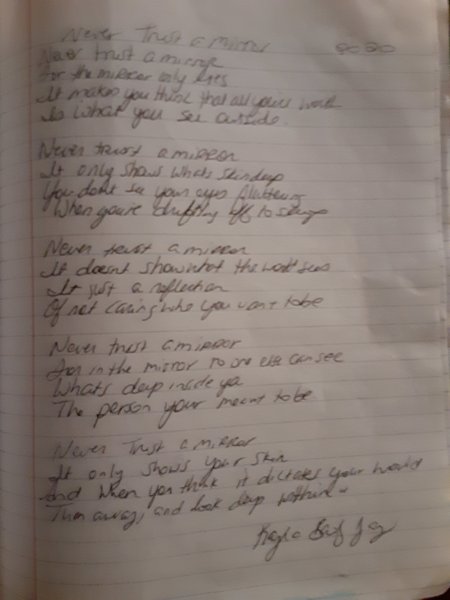 Never Trust a mirror
Never trust a mirror
For the mirror only lies
It makes you think that all your worth
Is What you see outside.
Never trust a mirror
It only shows whats skin deep
You dont see your eyes fluttering
When you're drifting off to sleep
Never trust a mirror
It doesnt show what the world sees
It just a reflection
Of not caring who you want to be
Never trust a mirror
For in the mirror no one else can see
Whats deep inside ya
The person your meant to be
Never Trust a mirror
It only shows your skin
And When you think it dictates your world
Turn away, and look deep within